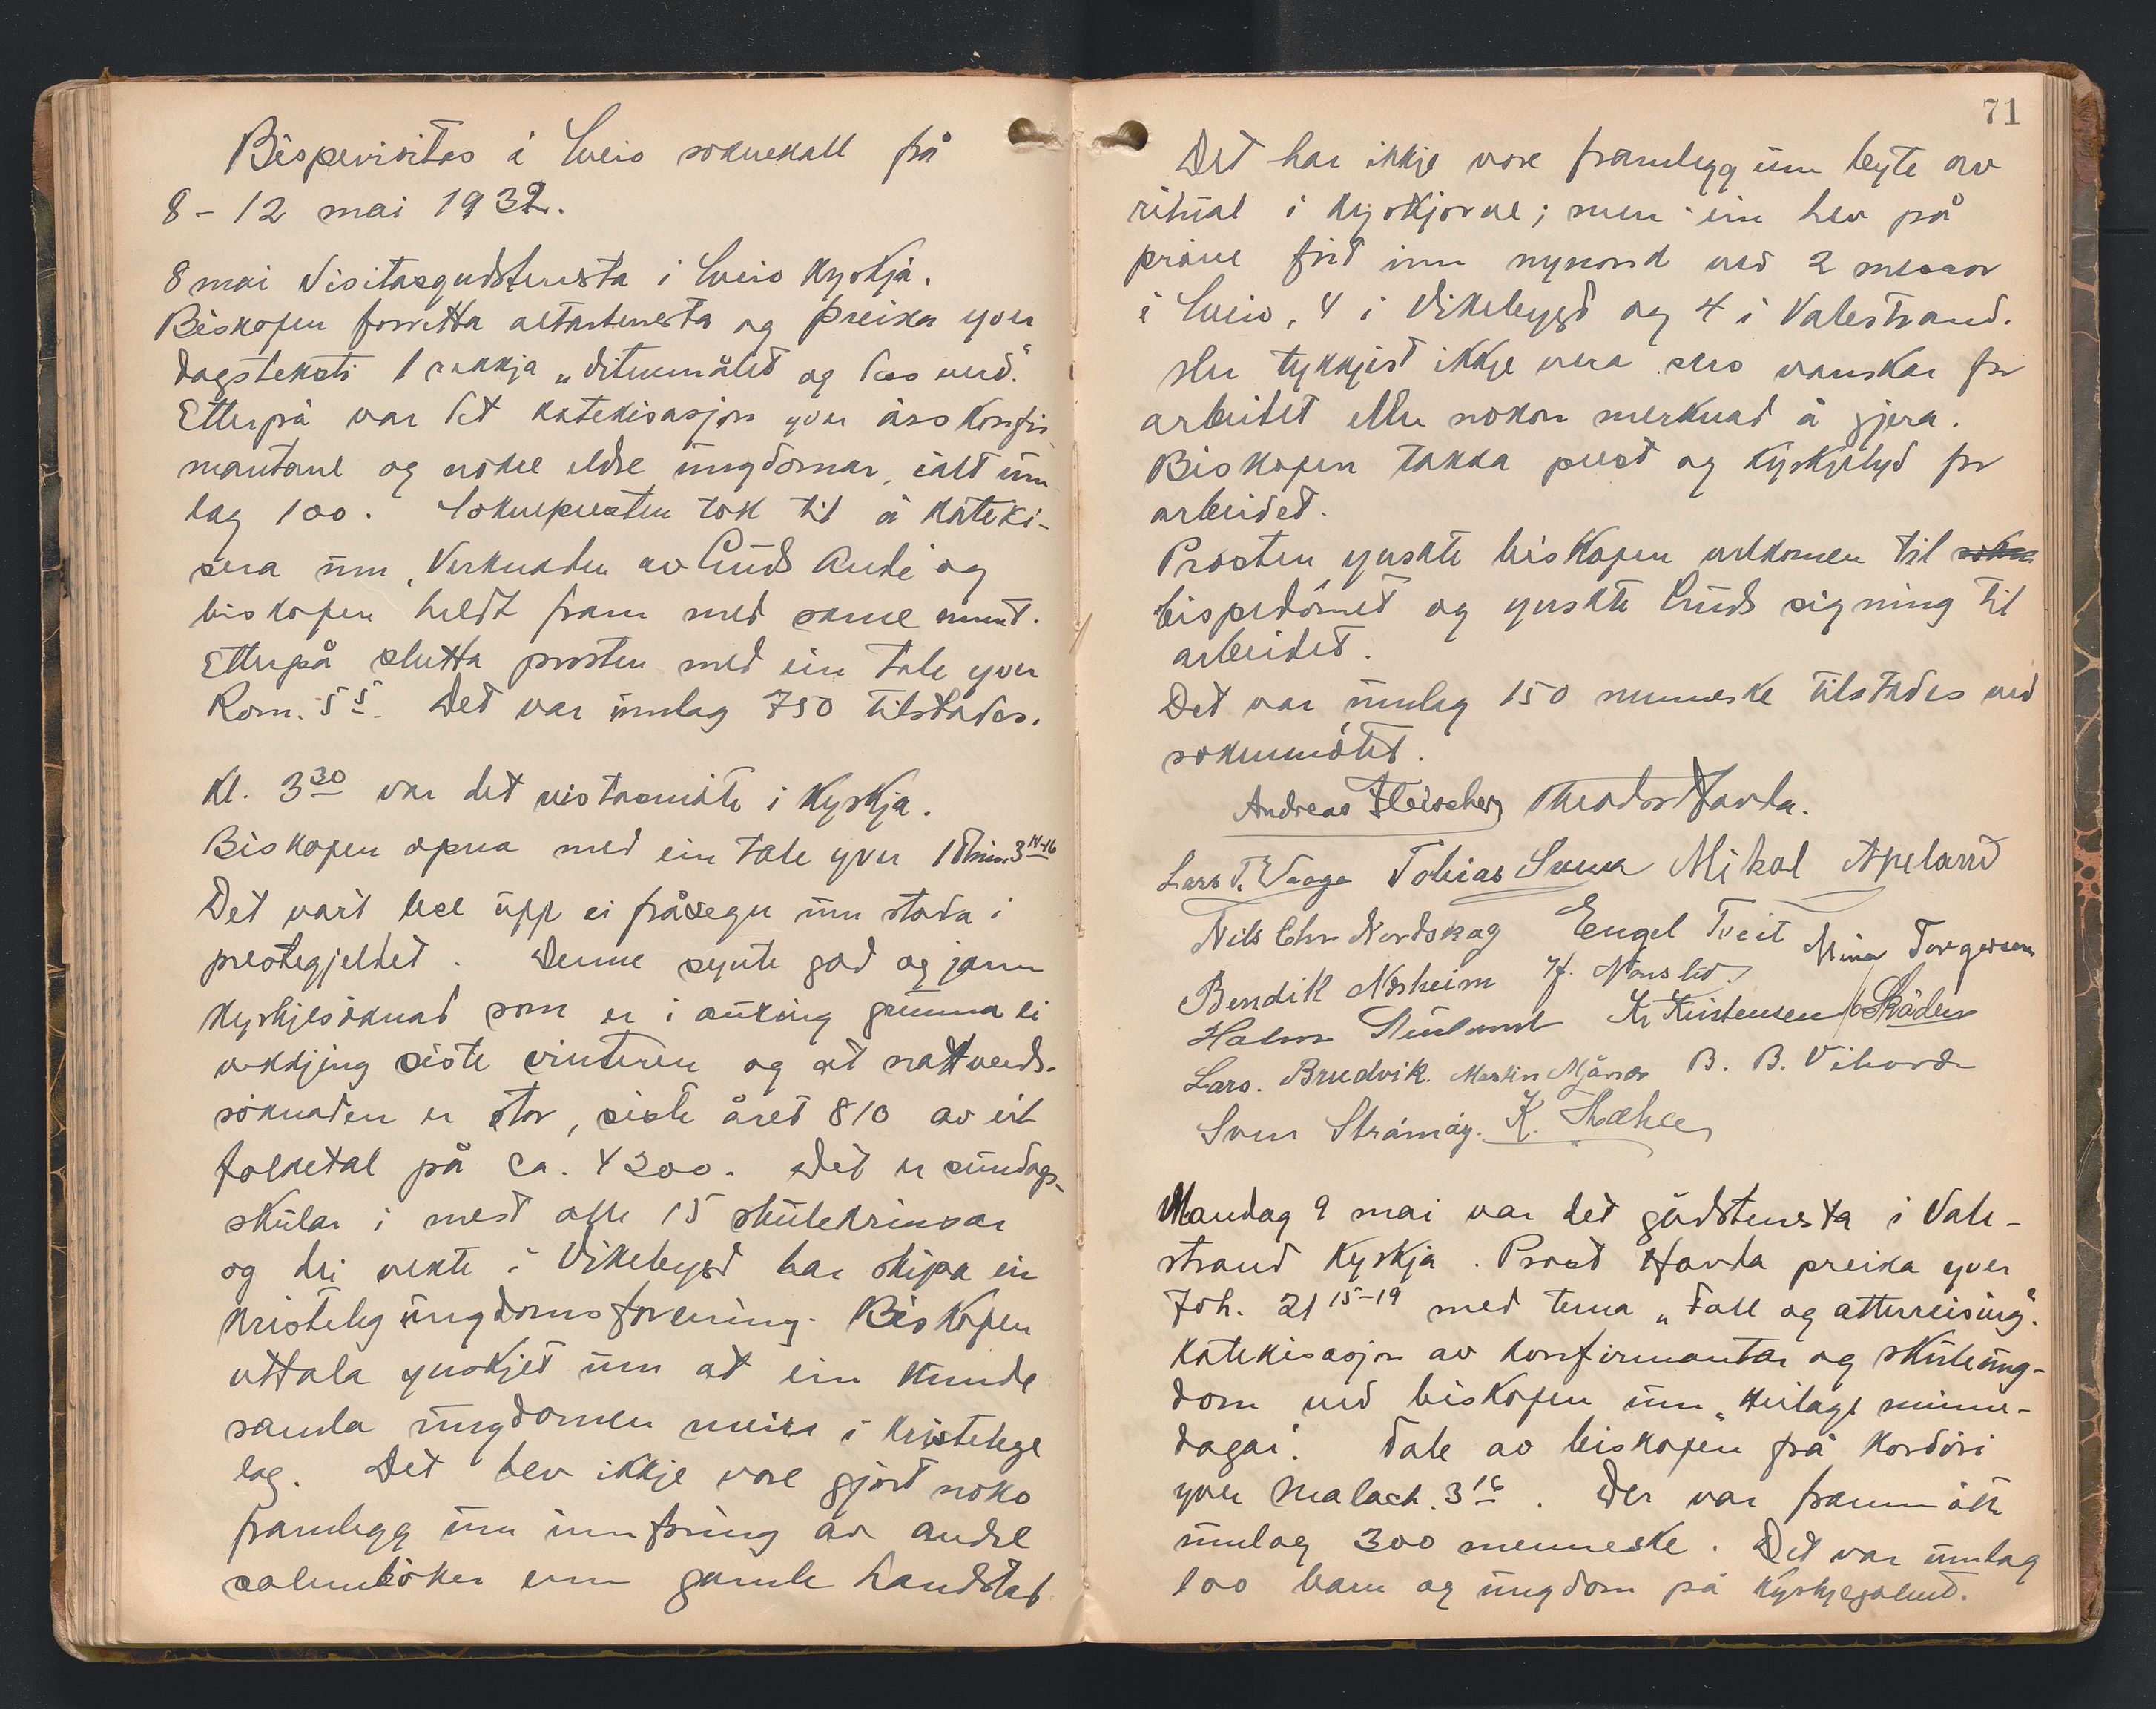 Bispevisitas i Sveio soknekall frå
8-12 mai 1932.
8 mai Visitasgudstenesta i Sveio Kyrkja.
Biskopen forretta altartenesta og preika yver
dagsteksti 1 rekkja „Vitnemålet og
Etterpå var det katekisasjon yver årskonfir
mantane og nokre eldre ungdomar, ialt um
lag 100. Soknepresten tok til å kateki-
sera um „Verknaden av Guds Ande og
biskopen heldt fram med same emnet.
Etterpå slutta prosten med ein tale yver
Rom. 5 5. Det var umlag 750 tilstades.
Kl. 3 30 var det vistasmøte i Kyrkja.
Biskopen opna med ein tale yver 1 Thim. 3 14-16
Det vart lese upp ei fråsegn um stoda i
prestegjeldet. Denne synte god og jamn
kyrkjesøknad som er i auking grunna ei
vekkjing siste vinteren og at nattverds-
søknaden er stor, siste året 810 av eit
folketal på ca. 4200. Det er sundags-
skular i mest alle 15 skulekrinsar
og dei vekte i Vikebygd har skipa ein
kristeleg ungdomsforening. Biskopen
uttala ynskjet um at ein kunde
samla ungdomen meire i kristelege
lag. Det hev ikkje vore gjort noko
framlegg um innføring av andre
salmebøker enn gamle Landstad
71
Det har ikkje vore framlegg um byte av
ritual i kyrkjorne; men ein hev på
prøve ført inn nynorsk ved 2 messor
i Sveio, 4 i Vikebygd og 4 i Valestrand.
Her tykkjest ikkje vera sers vanskar for
arbeidet eller nokon merknad å gjera.
Biskopen takka prest og kyrkjelyd for
arbeidet.
Prosten ynskte biskopen velkomen til
bispedømet og ynskte Guds signing til
arbeidet.
Det var umlag 150 menneske tilstades ved
soknemøtet.
Andreas Fleischer Theodor Havda.
Lars T. Vaage Tobias Svewa Mikal Apeland
Nils Chr Nordskog Engel Tveit Mina Torgersen
Bendik Nesheim H.
Halvor Kr Kristensen
Lars. Brudvik. Martin B. B.
Sven Strømøy. K. Stæhle
Mandag 9 mai var det gudstenesta i Vale-
strand Kyrkja. Prost Havda preika yver
Joh. 21 15-19 med tema „Fall og atterreising".
Katekisasjon av konfirmantar og skuleung-
dom ved biskopen um „Heilage minne-
dagar". Tale av biskopen frå kordøri
yver Malach. 3 16. Der var frammøtt
umlag 300 menneske. Det var umlag
100 barn og ungdom på kyrkjegolvet.